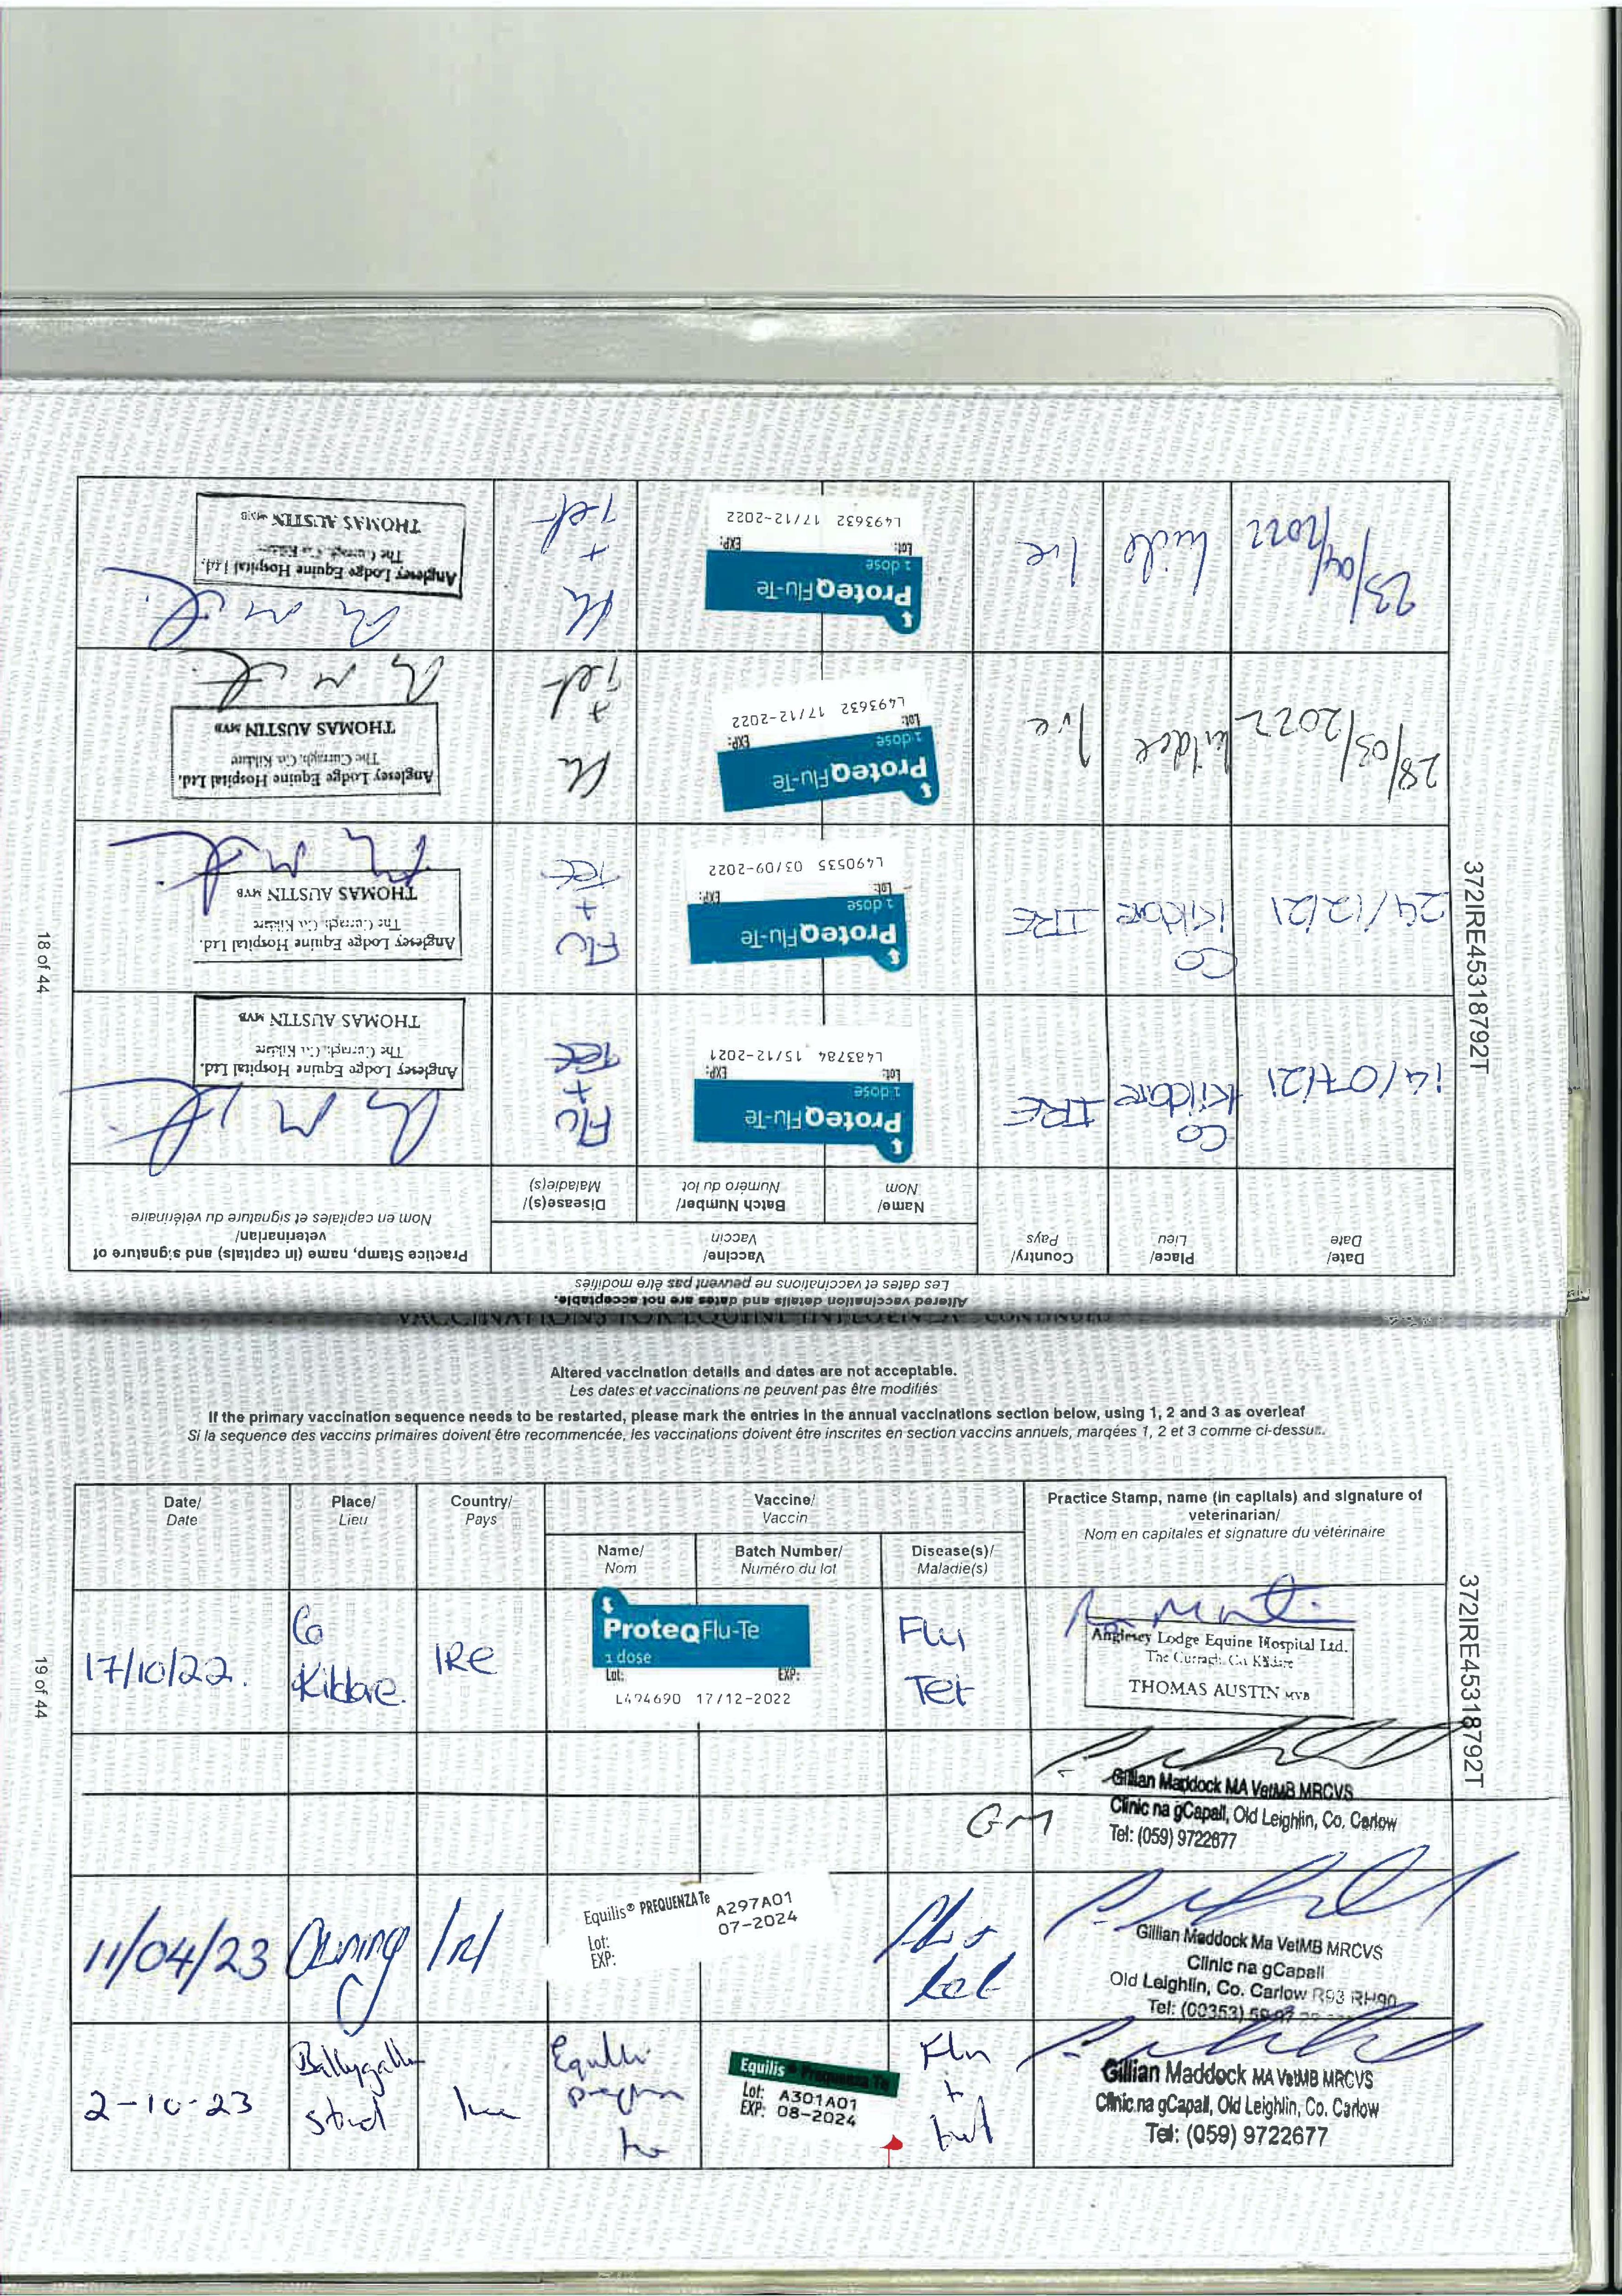 18 of 44
372IRE45318792T
Altered vaccination details and dates are not acceptable.
Les dates et vaccinations ne peuvent pas être modifiés
Date/
Date
Place/
Lieu
Country/
Pays
Vaccine/
Vaccin
Name/
Nom
Batch Number/
Numéro du lot
Disease(s)/
Maladie(s)
Practice Stamp, name (in capitals) and signature of
veterinarian/
Nom en capitales et signature du vétérinaire
14/07/21
Co
Kildare
IRE
ProteqFlu-Te
1 dose
Lot: EXP:
L483784 15/12-2021
Flu
+
Tet
Anglesey Lodge Equine Hospital Ltd.
The Curragh, Co. Kildare
THOMAS AUSTIN MVB
24/12/21
Co
Kildare
IRE
ProteqFlu-Te
1 dose
Lot: EXP:
L490535 03/09-2022
Flu
+
Tet
Anglesey Lodge Equine Hospital Ltd.
The Curragh, Co. Kildare
THOMAS AUSTIN MVB
28/03/2022
Kildare
Ire
ProteqFlu-Te
1 dose
Lot: EXP:
L493632 17/12-2022
Flu
+
Tet
Anglesey Lodge Equine Hospital Ltd.
The Curragh, Co. Kildare
THOMAS AUSTIN MVB
23/04/2022
Ire
ProteqFlu-Te
1 dose
Lot: EXP:
L493632 17/12-2022
Flu
+
Tet
Anglesey Lodge Equine Hospital Ltd.
The Curragh, Co. Kildare
THOMAS AUSTIN MVB
VACCINATIONS FOR EQUINE INFLUENZA - CONTINUED
Altered vaccination details and dates are not acceptable.
Les dates et vaccinations ne peuvent pas être modifiés
If the primary vaccination sequence needs to be restarted, please mark the entries in the annual vaccinations section below, using 1, 2 and 3 as overleaf
Si la sequence des vaccins primaires doivent être recommencée, les vaccinations doivent être inscrites en section vaccins annuels, marqées 1, 2 et 3 comme ci-dessus.
Date/
Date
Place/
Lieu
Country/
Pays
Vaccine/
Vaccin
Name/
Nom
Batch Number/
Numéro du lot
Disease(s)/
Maladie(s)
Practice Stamp, name (in capitals) and signature of
veterinarian/
Nom en capitales et signature du vétérinaire
17/10/22.
Co
Kildare.
IRE
ProteqFlu-Te
1 dose
Lot: EXP:
L494690 17/12-2022
Flu
Tet
Anglesey Lodge Equine Hospital Ltd.
The Curragh, Co. Kildare
THOMAS AUSTIN MVB
GM
Gillian Maddock MA VetMB MRCVS
Clinic na gCapall, Old Leighlin, Co. Carlow
Tel: (059) 9722677
11/04/23
Owning
Irl
Equilis® PREQUENZA Te
A297A01
07-2024
Lot:
EXP:
Flu +
tet
Gillian Maddock Ma VetMB MRCVS
Clinic na gCapall
Old Leighlin, Co. Carlow R93 RH90
Tel: (00353) 59 97
2-10-23
Stud
Ire
Equilis
Equilis® Prequenza Te
Lot: A301A01
EXP: 08-2024
Flu
+
tet
Gillian Maddock MA VetMB MRCVS
Clinic na gCapall, Old Leighlin, Co. Carlow
Tel: (059) 9722677
19 of 44
372IRE45318792T